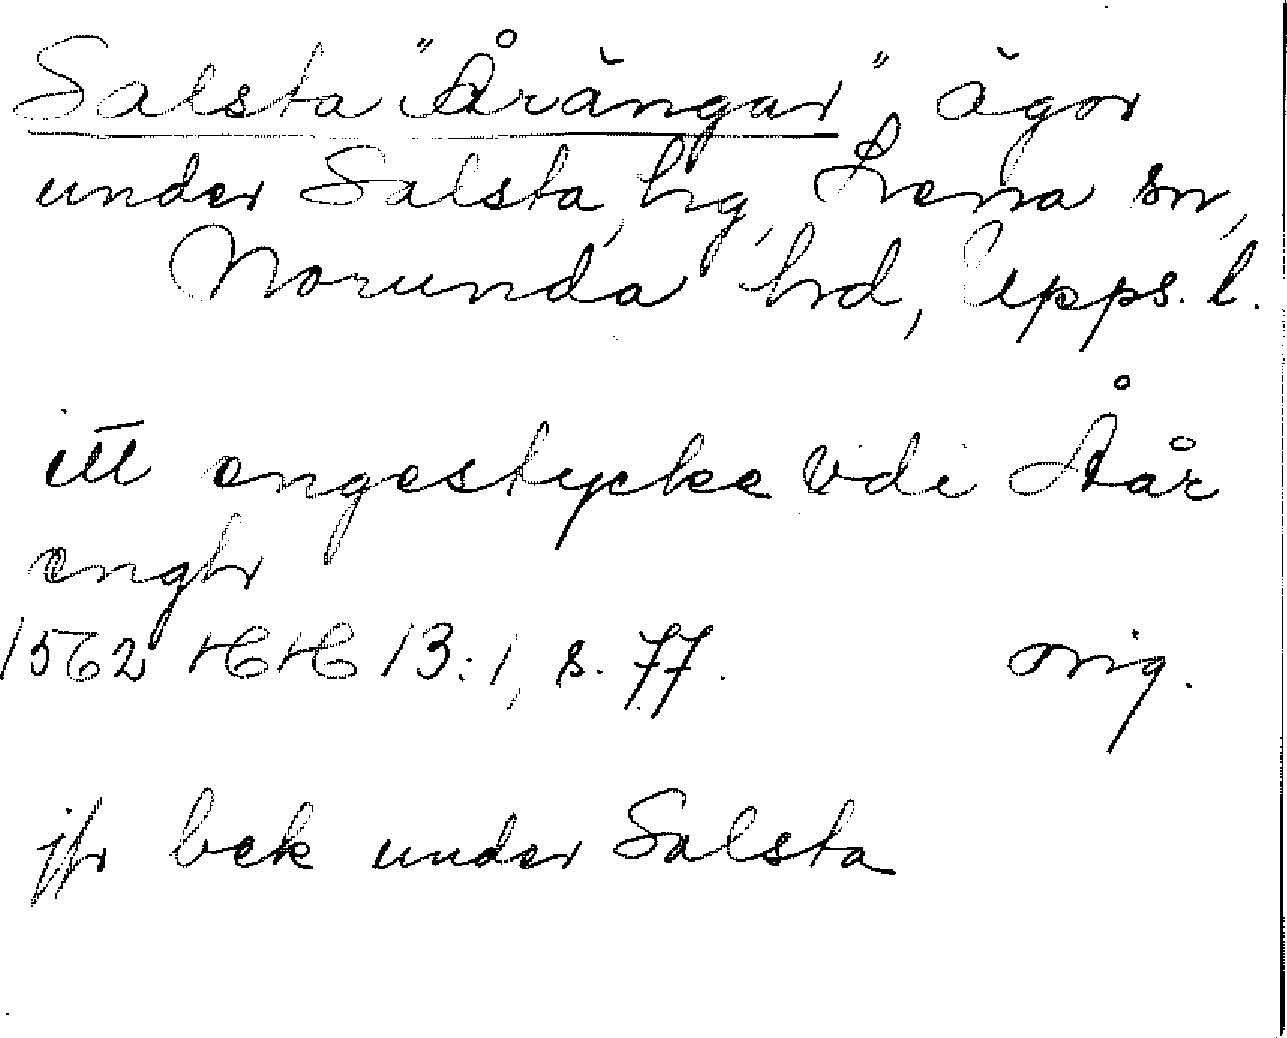 Salsta "Årängar", ägor
under Salsta, hg, Lena sn,
Norunda hd, Upps. l.
itt engestycke vdi Åår
engr
1562 HH 13:1, s. 77. orig.
jfr bek under Salsta